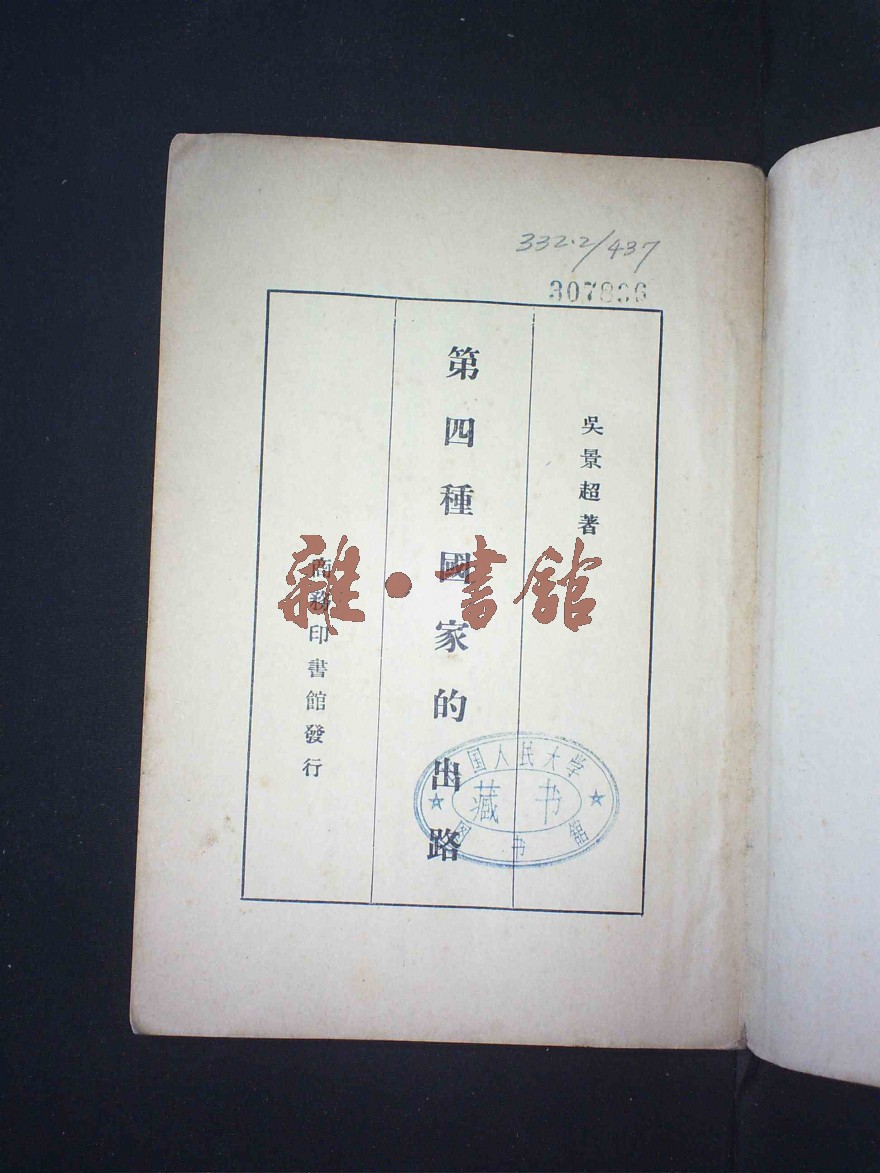 332.2/437
307836
吳景超著
第四種國家的出路
商務印書館發行
雜·書館
国人民大学
藏书
图书馆